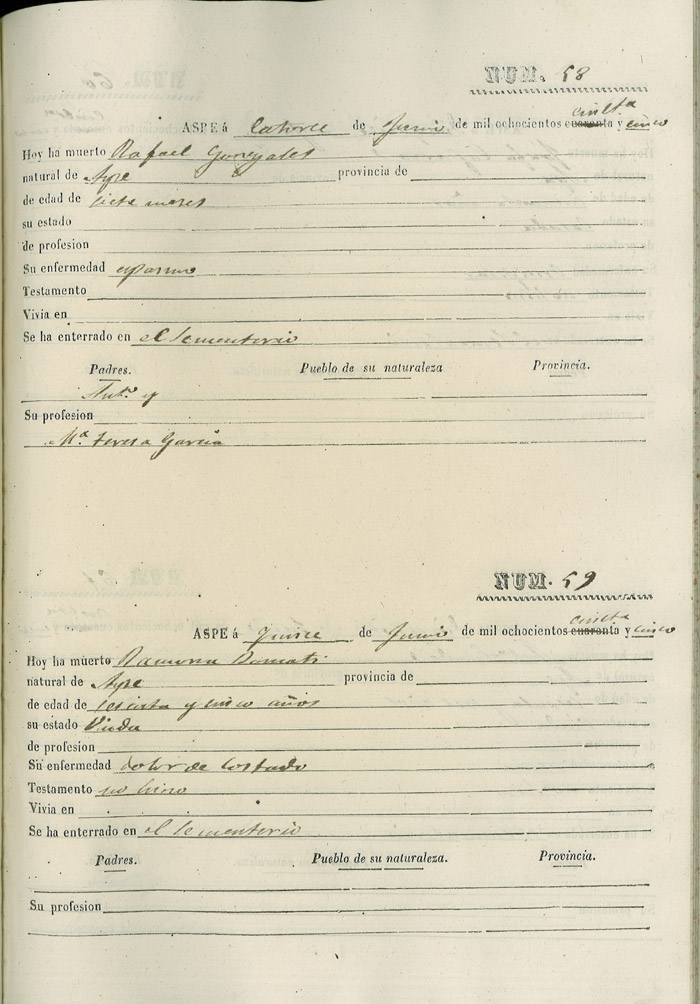 NUM. 58
ASPE á Catorce de Junio de mil ochocientos cuarenta y cinco
cincta
Hoy ha muerto Rafael Gonzales
natural de Aspe provincia de
de edad de siete meses
su estado
de profesion
Su enfermedad espasmo
Testamento
Vivia en
Se ha enterrado en el Sementerio
Padres. Pueblo de su naturaleza Provincia.
Anto. y
Su profesion
Ma. Teresa Garcia
NUM. 59
ASPE á Quince de Junio de mil ochocientos cuarenta y cinco
cincta
Hoy ha muerto Ramona
natural de Aspe provincia de
de edad de sesenta y cinco años
su estado Viuda
de profesion
Su enfermedad dolor de Costado
Testamento no hiso
Vivia en
Se ha enterrado en el Sementerio
Padres. Pueblo de su naturaleza. Provincia.
Su profesion